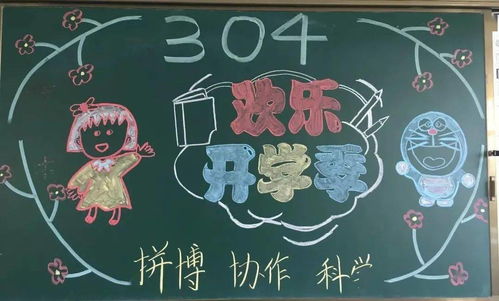 304
欢乐
开学季
拼博 协作 科学